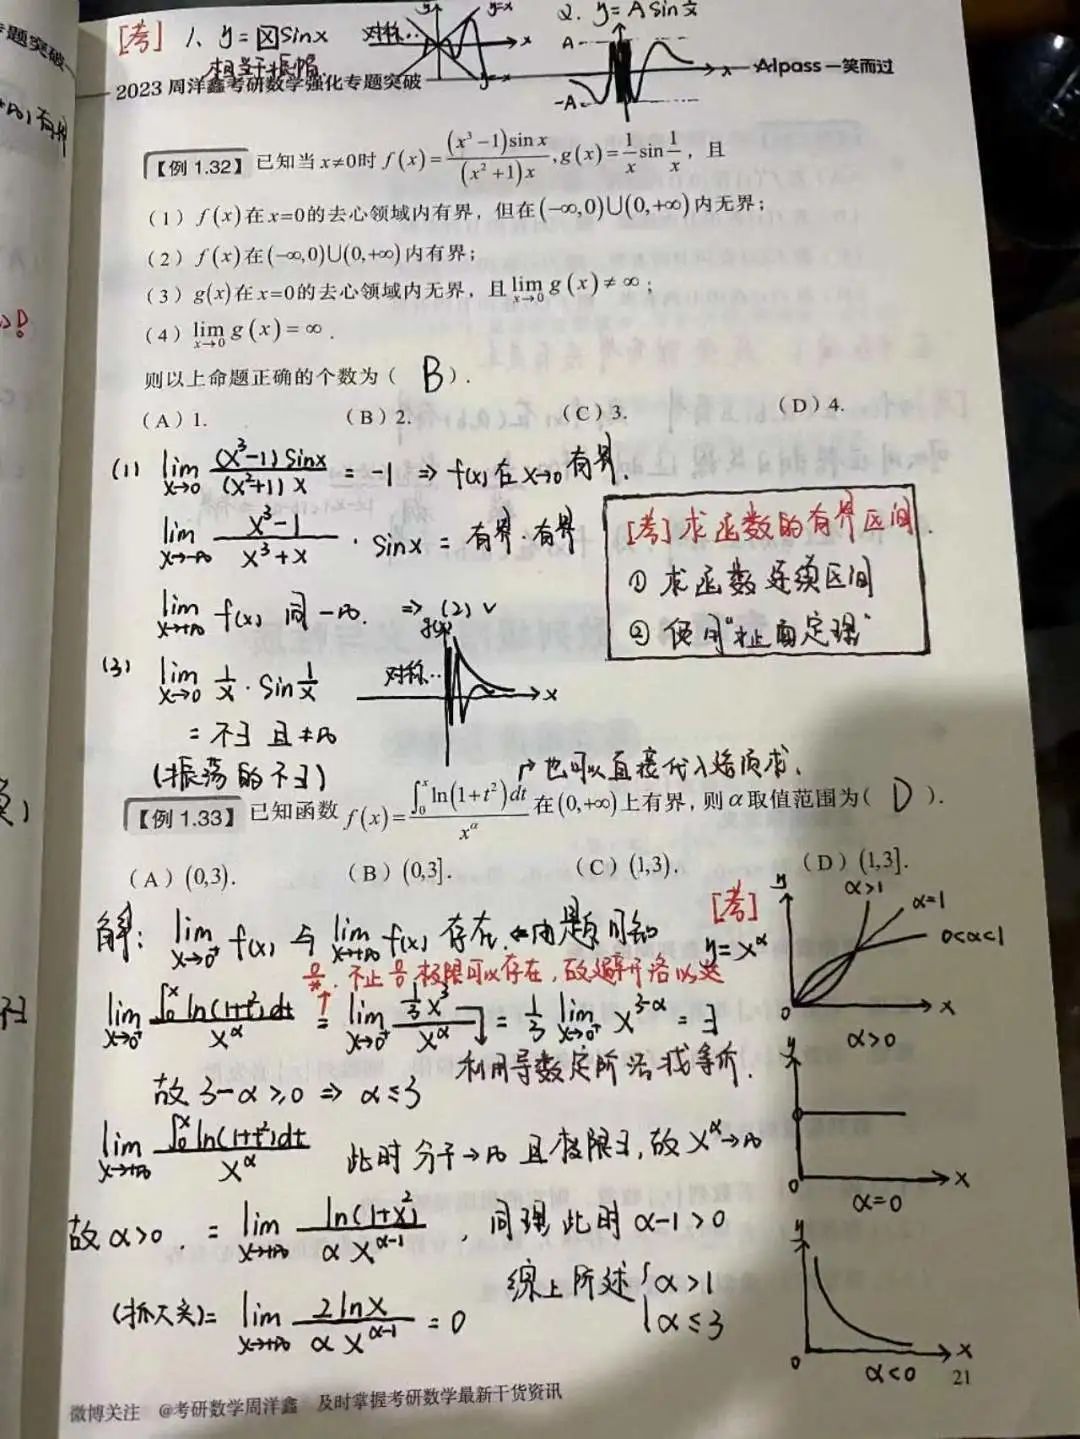 [考] 1、y=xSinx 对称… y=x 2. y=ASin1/x
相当于振幅 y=-x A -A x
2023 周洋鑫考研数学强化专题突破 Alpass一笑而过
【例 1.32】已知当x≠0时 f(x)=(x³-1)sin x/(x²+1)x, g(x)=1/x sin 1/x，且
(1) f(x)在x=0的去心领域内有界，但在(-∞,0)∪(0,+∞)内无界；
(2) f(x)在(-∞,0)∪(0,+∞)内有界；
(3) g(x)在x=0的去心领域内无界，且lim x→0 g(x)≠∞；
(4) lim x→0 g(x)=∞.
则以上命题正确的个数为( B ).
(A) 1. (B) 2. (C) 3. (D) 4.
(1) lim x→0 (x³-1)Sinx/(x²+1)x = -1 ⇒ f(x)在x→0有界.
lim x→-∞ x³-1/x³+x · Sinx = 有界·有界
lim x→+∞ f(x) 同-∞. ⇒ (2)√
[考]求函数的有界区间
① 求函数连续区间
② 使用"趋向定理"
(3) lim x→0 1/x · Sin1/x 对称… x
= 不∃ 且≠∞
(振荡的不∃)
也可以直接代入选项求.
【例 1.33】已知函数 f(x)=∫₀ˣ ln(1+t²)dt/x^α 在(0,+∞)上有界，则α取值范围为( D ).
(A) (0,3). (B) (0,3]. (C) (1,3). (D) (1,3].
解: lim x→0⁺ f(x) 与 lim x→+∞ f(x) 存在. ←由题可知
极限可以存在，故避开洛必达
lim x→0⁺ ∫₀ˣ ln(1+t²)dt/x^α = lim x→0⁺ 1/3x³/x^α = 1/3 lim x→0⁺ x^3-α = ∃
利用导数定阶法找等价.
故 3-α≥0 ⇒ α≤3
lim x→+∞ ∫₀ˣ ln(1+t²)dt/x^α 此时分子→∞ 且极限∃,故x^α→∞
故α>0. = lim x→+∞ ln(1+x²)/αx^α-1, 同理此时 α-1>0
(抓大头)= lim x→+∞ 2lnx/αx^α-1 = 0
综上所述 {α>1
α≤3
[考] y=x^α
y α>1 α=1 0<α<1
0 x
α>0
y
0 x
α=0
y
0 x
α<0
21
微博关注 @考研数学周洋鑫 及时掌握考研数学最新干货资讯